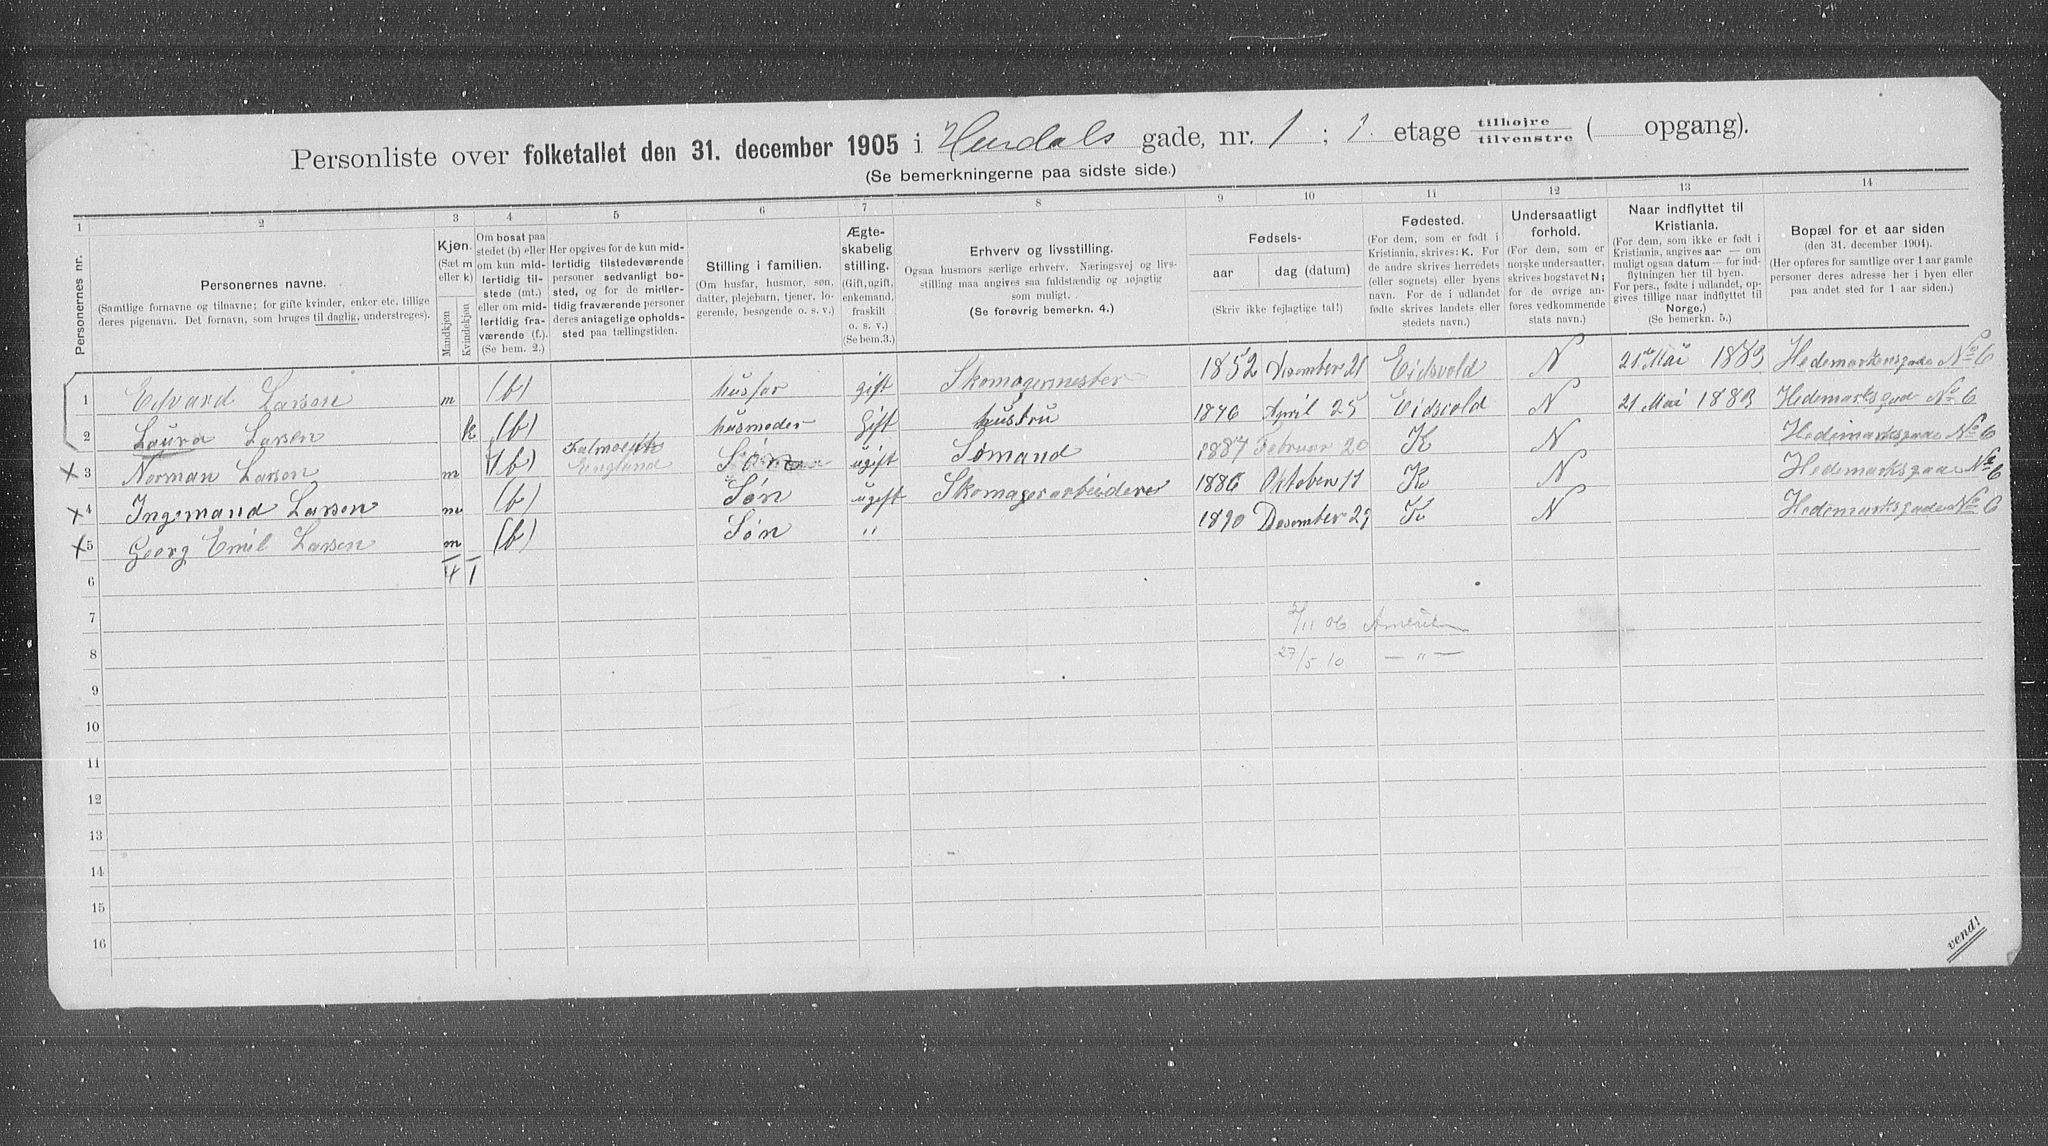 Personliste over folketallet den 31. december 1905 i Hurdals gade, nr. 1 ; 1 etage tilhøjre / tilvenstre ( opgang).
(Se bemerkningerne paa sidste side.)
1 2 3 4 5 6 7 8 9 10 11 12 13 14
Personernes nr.
Personernes navne.
(Samtlige fornavne og tilnavne; for gifte kvinder, enker etc. tillige
deres pigenavn. Det fornavn, som bruges til daglig, understreges).
Kjøn.
(Sæt m
eller k)
Mandkjøn
Kvindekjøn
Om bosat paa
stedet (b) eller
om kun mid-
lertidig til-
stede (mt.)
eller om mid-
lertidig fra-
værende (f.).
(Se bem. 2.)
Her opgives for de kun mid-
lertidig tilstedeværende
personer sedvanligt bo-
sted, og for de midler-
tidig fraværende personer
deres antagelige opholds-
sted paa tællingstiden.
Stilling i familien.
(Om husfar, husmor, søn,
datter, plejebarn, tjener, lo-
gerende, besøgende o. s. v.)
Ægte-
skabelig
stilling.
(Gift, ugift,
enkemand,
fraskilt
o. s. v.)
(Se bem.3.)
Erhverv og livsstilling.
Ogsaa husmors særlige erhverv. Næringsvej og livs-
stilling maa angives saa fuldstændig og nøjagtig
som muligt.
(Se forøvrig bemerkn. 4.)
Fødsels-
aar dag (datum)
(Skriv ikke fejlagtige tal!)
Fødested.
(For dem, som er født i
Kristiania, skrives: K. For
de andre skrives herredets
(eller sognets) eller byens
navn. For de i udlandet
fødte skrives landets eller
stedets navn.)
Undersaatligt
forhold.
(For dem, som er
norske undersaatter,
skrives bogstavet N;
for de øvrige an-
føres vedkommende
stats navn.)
Naar indflyttet til
Kristiania.
(For dem, som ikke er født i
Kristiania, angives aar — om
muligt ogsaa datum — for ind-
flytningen her til byen.
For pers., fødte i udlandet, op-
gives tillige naar indflyttet til
Norge.)
(Se bemerkn. 5.)
Bopæl for et aar siden
(den 31. december 1904).
(Her opføres for samtlige over 1 aar gamle
personer deres adresse her i byen eller
paa andet sted for 1 aar siden.)
1 Edvard Larsen m (b) husfar gift Skomagermester 1852 Desember 21 Eidsvold N 21de Mai 1883 Hedemarkensgade No 6
2 Laura Larsen k (b) husmoder Gift hustru 1846 April 25 Eidsvold N 21 Mai 1883 Hedemarksgade No 6
x 3 Norman Larsen m (b) Falmouth England Søn ugift Sømand 1887 Februar 20 K N Hedemarksgade No 6
x 4 Ingemand Larsen m (b) Søn ugift Skomagerarbeider 1886 Oktober 11 K N Hedemarksgade No 6
x 5 Georg Emil Larsen m (b) Søn " 1890 Desember 29 K N Hedemarksgade No 6
6 4 1
7 2/11 06 Amerika
8 27/5 10 — " —
9
10
11
12
13
14
15
16
vend!